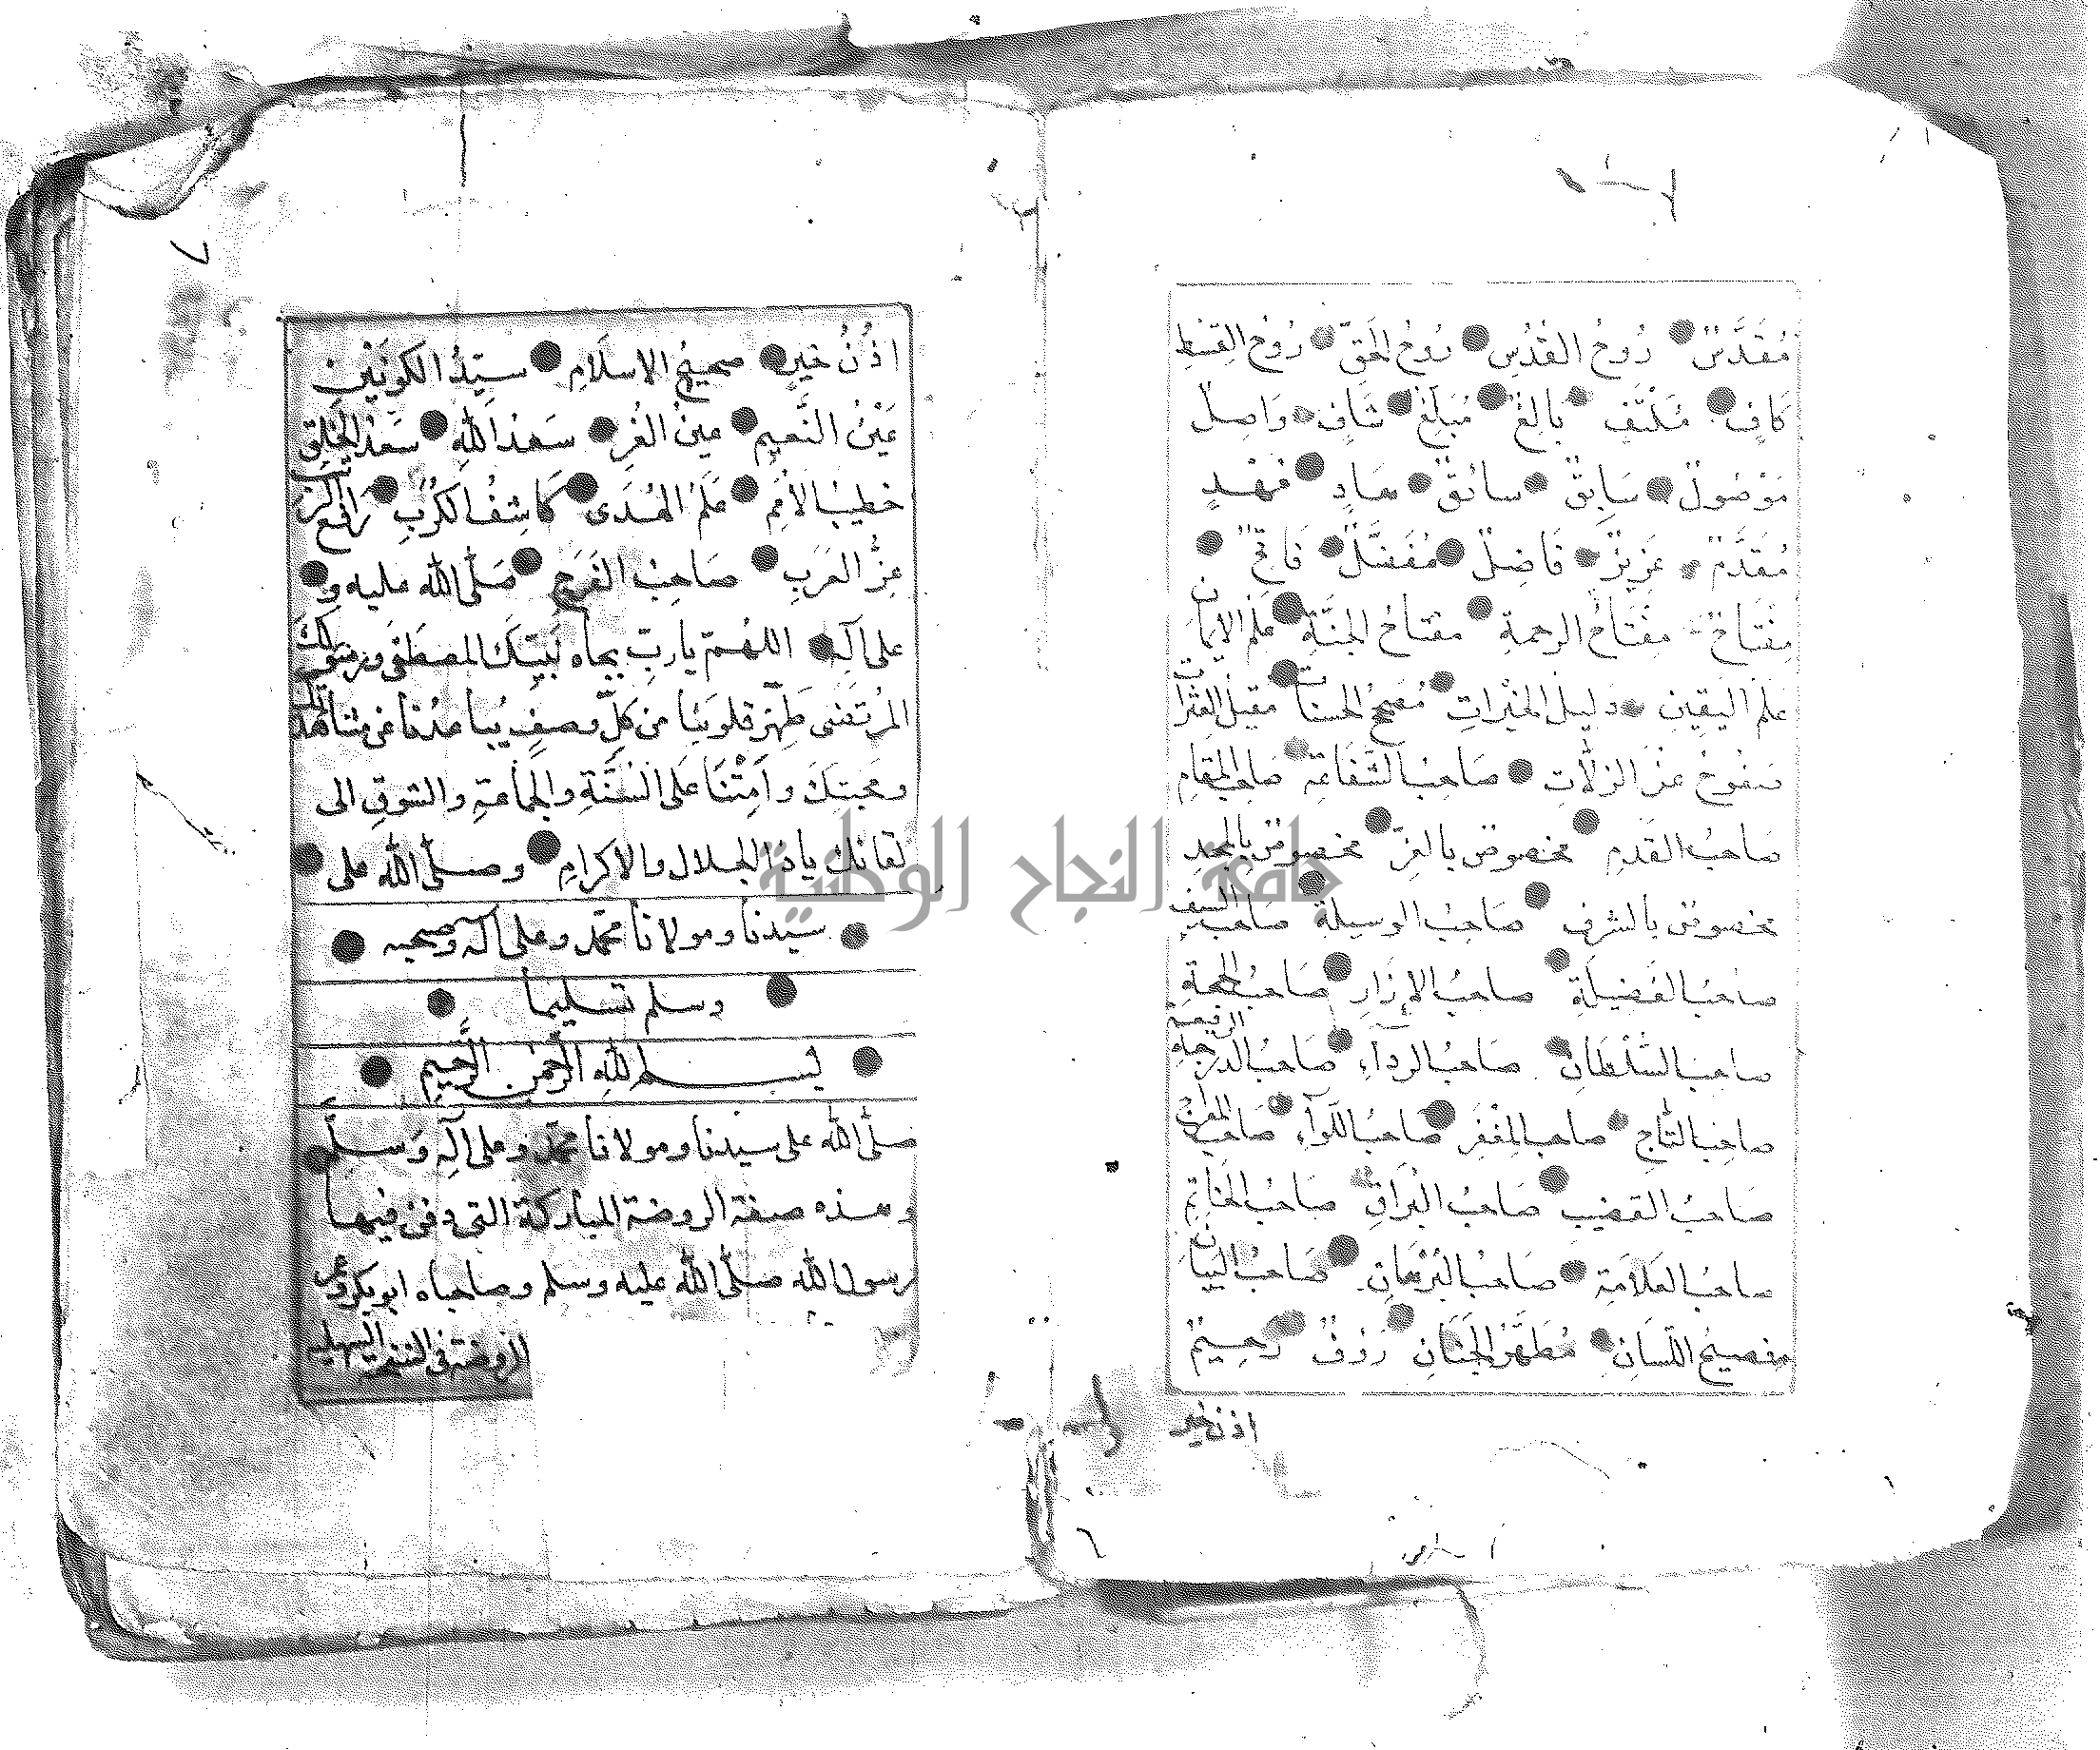 مُقَدَّسٌ رُوحُ القُدُسِ رُوحُ الحَقِّ رُوحُ القِسْطِ
كَافٍ مُكْتَفٍ بَالِغٌ مُبَلِّغٌ شَافٍ وَاصِلٌ
مَوْصُولٌ سَابِقٌ سَائِقٌ هَادٍ مُهْدٍ
مُقَدَّمٌ عَزِيزٌ فَاضِلٌ مُفَضَّلٌ فَاتِحٌ
مِفْتَاحٌ مِفْتَاحُ الرحمةِ مفتاحُ الجنّةِ عَلَمُ الايمان
عَلَمُ اليَقِينِ دَلِيلُ الخَيْرَاتِ مُصَحِّحُ الحسنات مقيلُ العثرات
صَفُوحٌ عَنِ الزلّاتِ صَاحِبُ الشَّفَاعَةِ صاحب المقام
صَاحبُ القَدَمِ مخصوصٌ بالعِزِّ مخصوصٌ بالمجدِ
مخصوصٌ بالشرفِ صَاحِبُ الوسيلةِ صَاحبُ السيف
صاحبُ الفَضيلَةِ صاحبُ الإزَارِ صَاحبُ الحجةِ
صاحبُ السُّلْطَانِ صَاحبُ الردآءِ صَاحبُ الدرجةِ الرفيعة
صاحبُ التّاجِ صاحب المِغْفَرِ صَاحبُ اللّوآءِ صَاحبُ المعراج
صَاحبُ القضيبِ صَاحبُ البُرَاقِ صَاحبُ الخاتِمِ
صاحبُ العَلَامَةِ صَاحبُ البُرْهَانِ صَاحبُ البيان
فصيحُ اللّسَانِ مُطَهَّرُ الجَنَانِ رَؤُفٌ رَحِيمٌ
اذن خير
٦
٧
اذُنُ خيرٍ صحيحُ الاسلَامِ سيّدُ الكونَيْنِ
عَيْنُ النَّعيمِ عينُ الغُرِّ سَعدُ اللهِ سَعدُ الخلقِ
خطيبُ الأمَمِ عَلَمُ الهُدَى كَاشِفُ الكُرَبِ رَافع الرتب
عزُّ العَرَبِ صَاحبُ الفَرَجِ صَلَّى الله عليه و
على آلهِ اللهُمّ يا ربِّ بجاه نَبيّكَ المصطَفى ورسولك
المرْتَضى طَهّر قلوبَنا من كلِّ وصفٍ يُباعدُنا عن مشاهدتك
ومحبتكَ وَامِتْنَا عَلى السُّنَّةِ والجماعةِ والشوقِ الى
لقائك ياذا الجلال والاكرامِ وصلّى الله على
سيّدنا ومولانا محمّد وعلى آله وصحبه
وسلم تسليما
بسم الله الرّحمن الرَّحيمِ
صلّى الله على سيدنا ومولانا محمّد وعلى آله وَسلّم
وهذه صفة الروضة المباركة التى دفن فيها
رسول الله صلّى الله عليه وسلم وصاحباه ابوبكر وعمر
الروضة فى النسخة السهلية
جامعة النجاح الوطنية